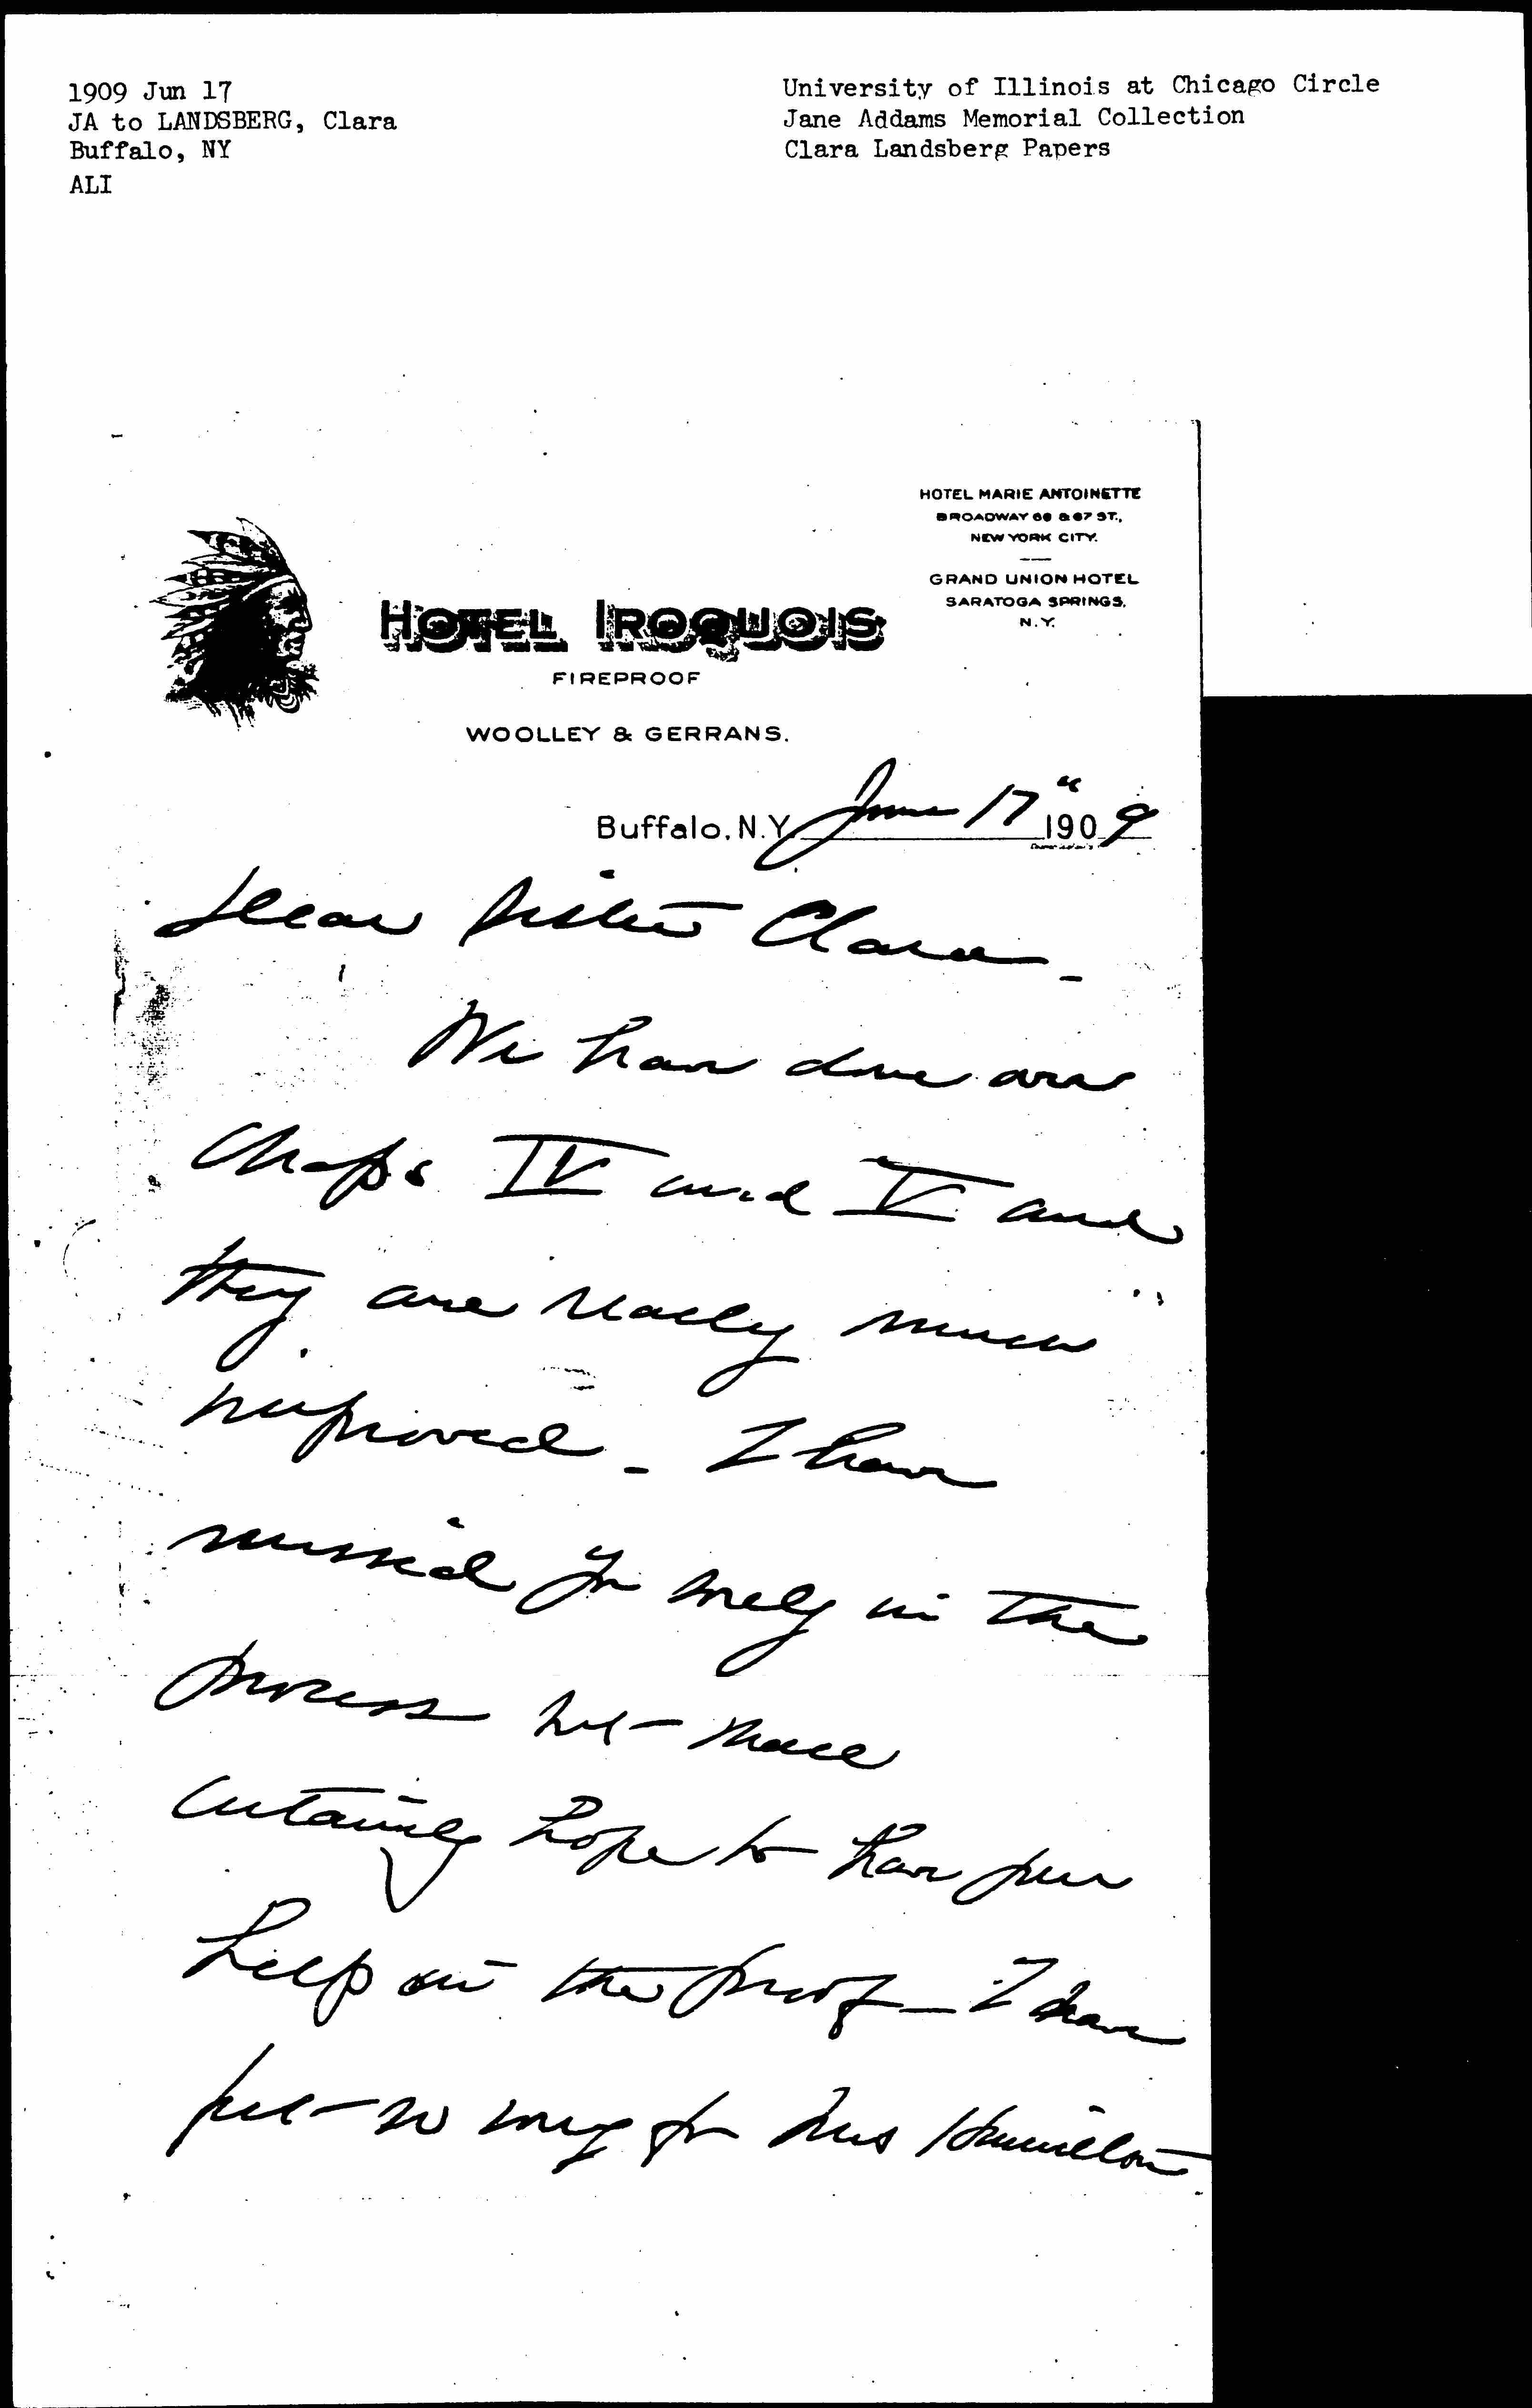 1909 Jun 17
JA to LANDSBERG, Clara
Buffalo, NY
ALI
University of Illinois at Chicago Circle
Jane Addams Memorial Collection
Clara Landsberg Papers
HOTEL MARIE ANTOINETTE
BROADWAY 66 & 67 ST.,
NEW YORK CITY.
GRAND UNION HOTEL
SARATOGA SPRINGS,
N.Y.
HOTEL IROQUOIS
FIREPROOF
WOOLLEY & GERRANS.
Buffalo, N.Y. June 17" 1909
Dear Sister Clara -
We have done over
Chaps IV and V and
they are really much
improved - I have
missed you sorely in the
process but shall
certainly hope to have your
help on the proof - I have
felt so for Miss Hamilton